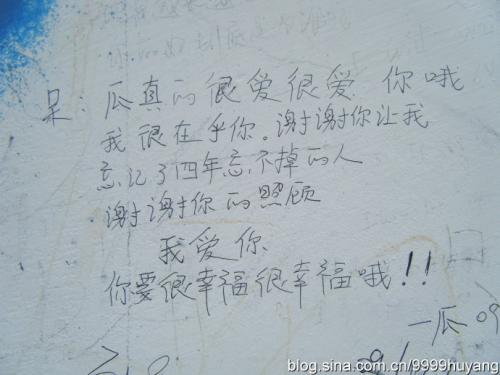 呆：瓜真的很爱很爱 你哦
我很在乎你。谢谢你让我
忘记了四年忘不掉的人
谢谢你的照顾
我爱你
你要很幸福很幸福哦!!
一瓜 09
blog.sina.com.cn/9999huyang